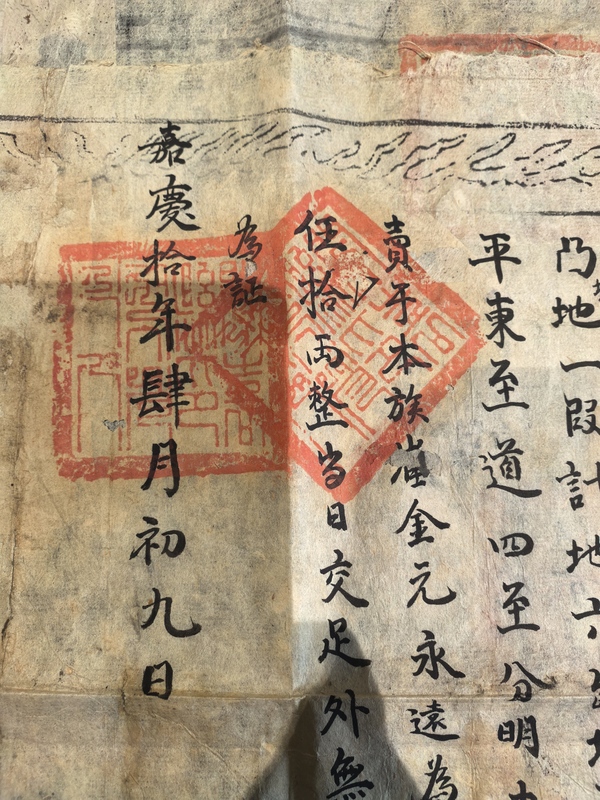 凸地一段計地六
平東至道四至分明
賣于本族崔金元永遠為
伍拾両整当日交足外無
為証
嘉慶拾年肆月初九日